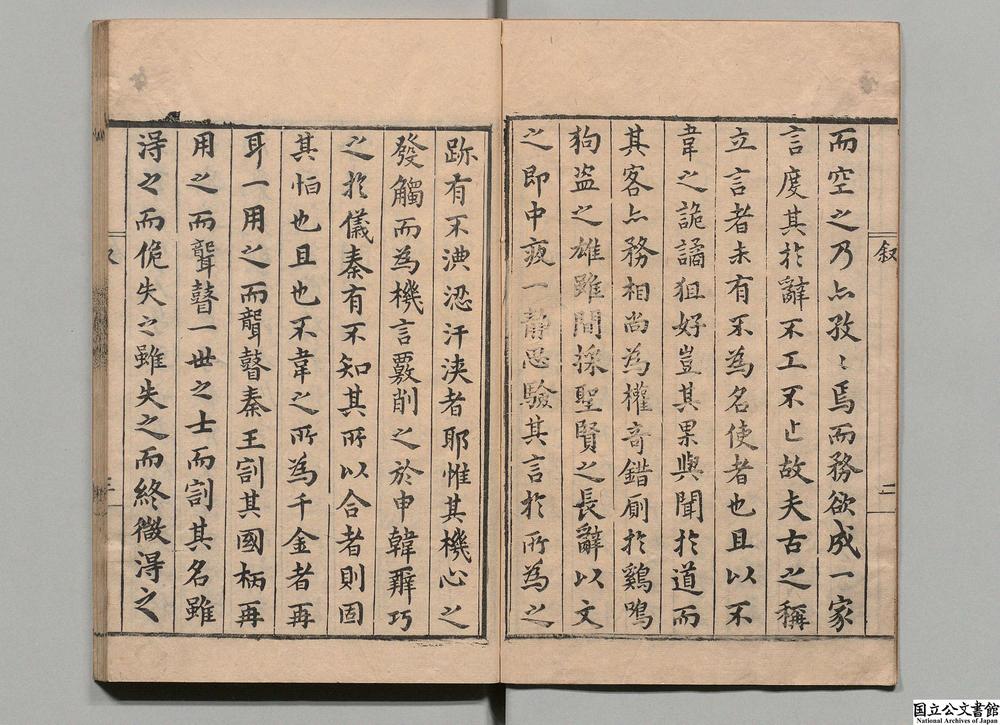 而空之乃亦孜〻焉而務欲成一家
言度其於辭不工不止故夫古之稱
立言者未有不為名使者也且以不
韋之詭譎狙好豈其果與聞於道而
其客亦務相尚為權奇錯廁於雞鳴
狗盜之雄雖間採聖賢之長辭以文
之即中夜一靜思驗其言於所為之
跡有不淟涊汗浹者耶惟其機心之
發觸而為機言覈削之於申韓辯巧
之於儀秦有不知其所以合者則固
其怕也且也不韋之所為千金者再
耳一用之而聾瞽秦王劀其國柄再
用之而聾瞽一世之士而劀其名雖
淂之而佹失之雖失之而終微淂之
叙
二
三
国立公文書館
National Archives of Japan